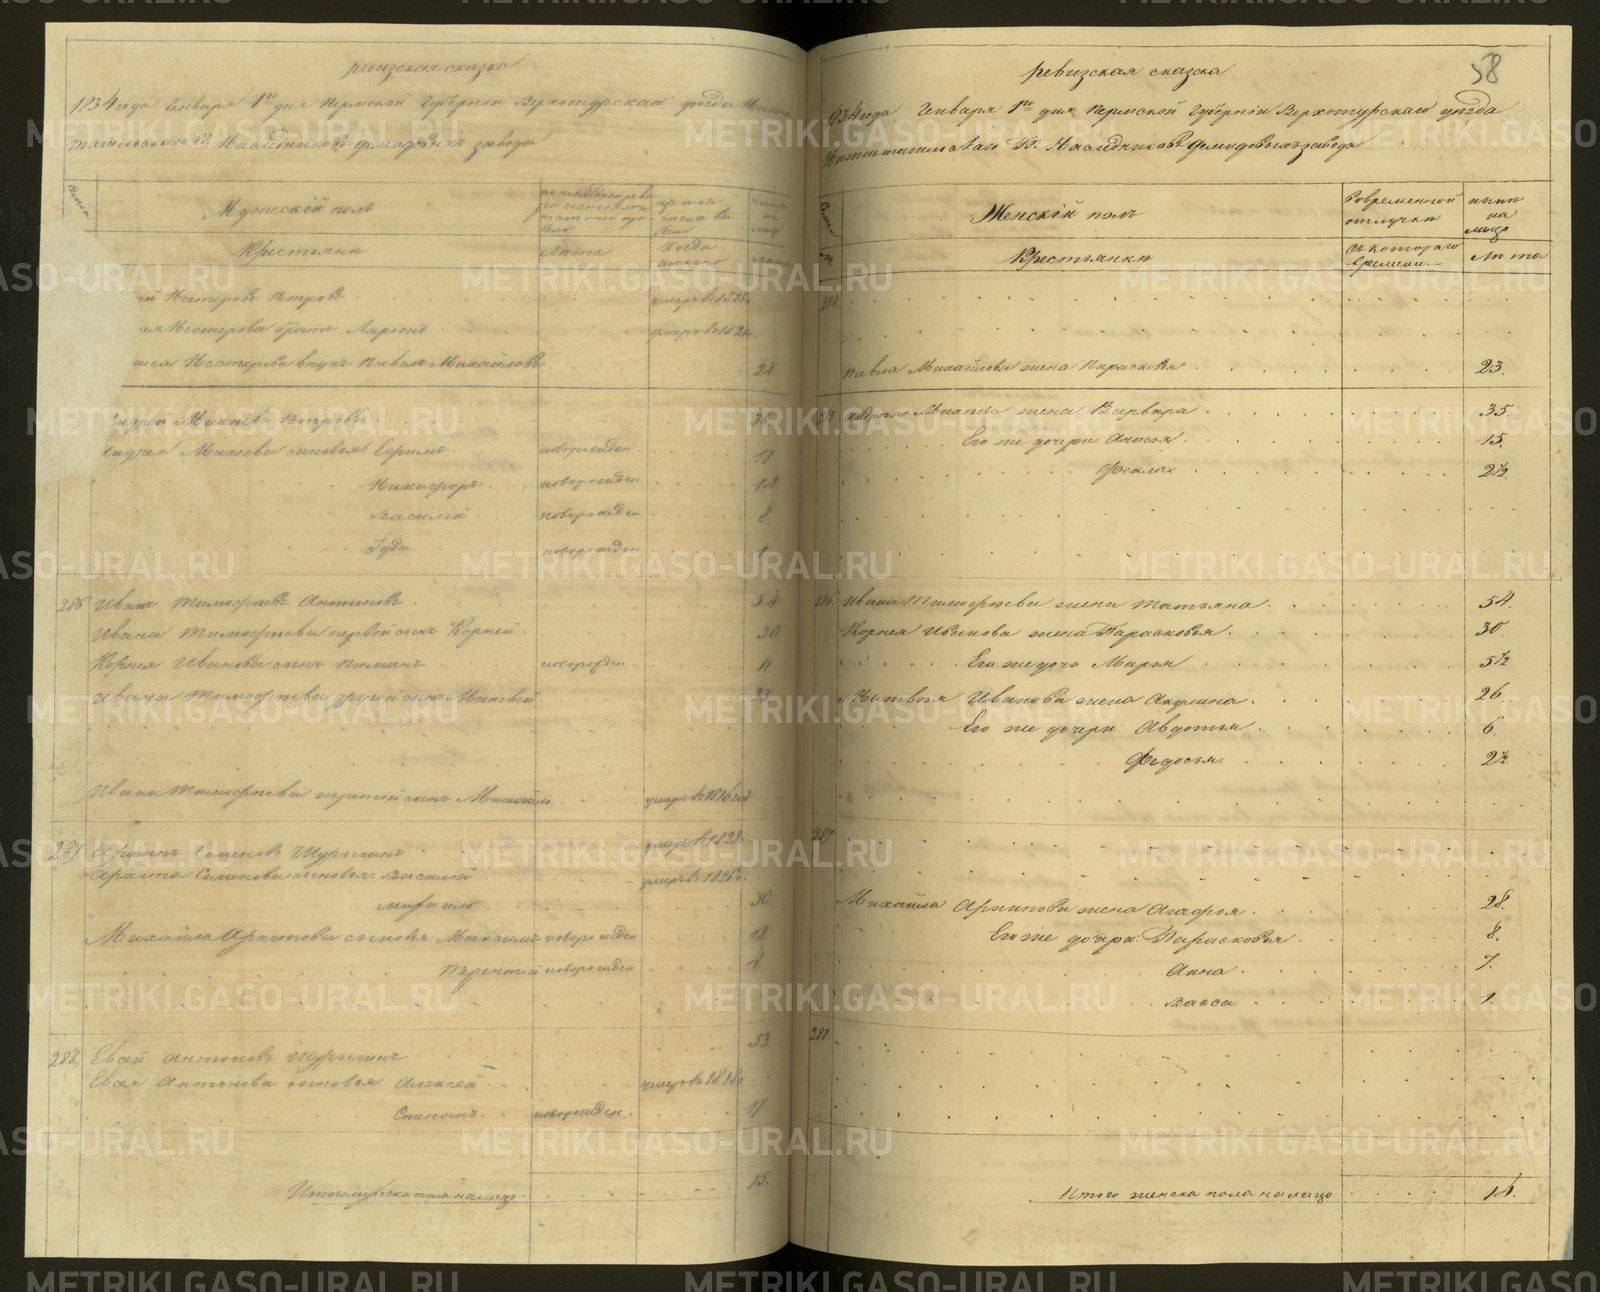 ревизская сказка
1834 года Генваря 1го дня Пермской Губернiи Верхотурскаго уезда Нижне
тагильскаго Гг. Наследниковъ Демидовыхъ завода
Семьи
Мужескiй полъ
Крестьяне
Лета
Когда именно
Лета
Нестеровъ Петровъ умеръ в 1825
Нестерова братъ Ларiонъ умеръ в 182
Нестерова внукъ Павелъ Михайловъ 24
Михеевъ Петровъ 36
Андрея Михеева сыновья Ефимъ новорожден 17
Никифоръ новорожден 12
Василiй новорожден 8
Iуда новорожден 1
286 Иванъ Тимофеевъ Антиповъ 54
Ивана Тимофеева первой сынъ Корней 30
Корнея Иванова сынъ Пиманъ новорожден 11
Ивана Тимофеева другой сынъ Матвей 23
Ивана Тимофеева третiй сынъ Михайло умеръ в 1816 год
287 Архипъ Семеновъ Шурыгинъ умеръ в 1828
Архипа Семенова сыновья: Василiй умеръ в 1826
Михайло 30
Михайла Архипова сыновья: Максимъ новорожден 12
Терентiй новорожден 4
288 Евсей Антоновъ Шурыгинъ 53
Евсея Антонова сыновья: Алексей умеръ в 1818
Степанъ новорожден 17
Итого мужеска пола на лицо 15.
ревизская сказка
58
1834 года Генваря 1го дня Пермской Губернiи Верхотурскаго уезда
Нижнетагильскаго Гг. Наследниковъ Демидовыхъ завода
Семьи
Женскiй полъ
Во временной отлучке
ныне на лицо
Крестьянки
Съ котораго времени
Лета
284
Павла Михайлова жена Парасковья 23.
Андрея Михеева жена Варвара 35.
Его же дочери: Анисья 15.
Фекла 2½.
286 Ивана Тимофеева жена Татьяна 54.
Корнея Иванова жена Парасковья 30.
Его же дочь Марья 5½
Матвея Иванова жена Акулина 26.
Его же дочери: Авдотья 6.
Федосья 2½.
287
Михайла Архипова жена Агафья 28.
Его же дочери: Парасковья 8.
Анна 7.
Васса 1.
288
Итого женска пола на лицо
METRIKI.GASO-URAL.RU